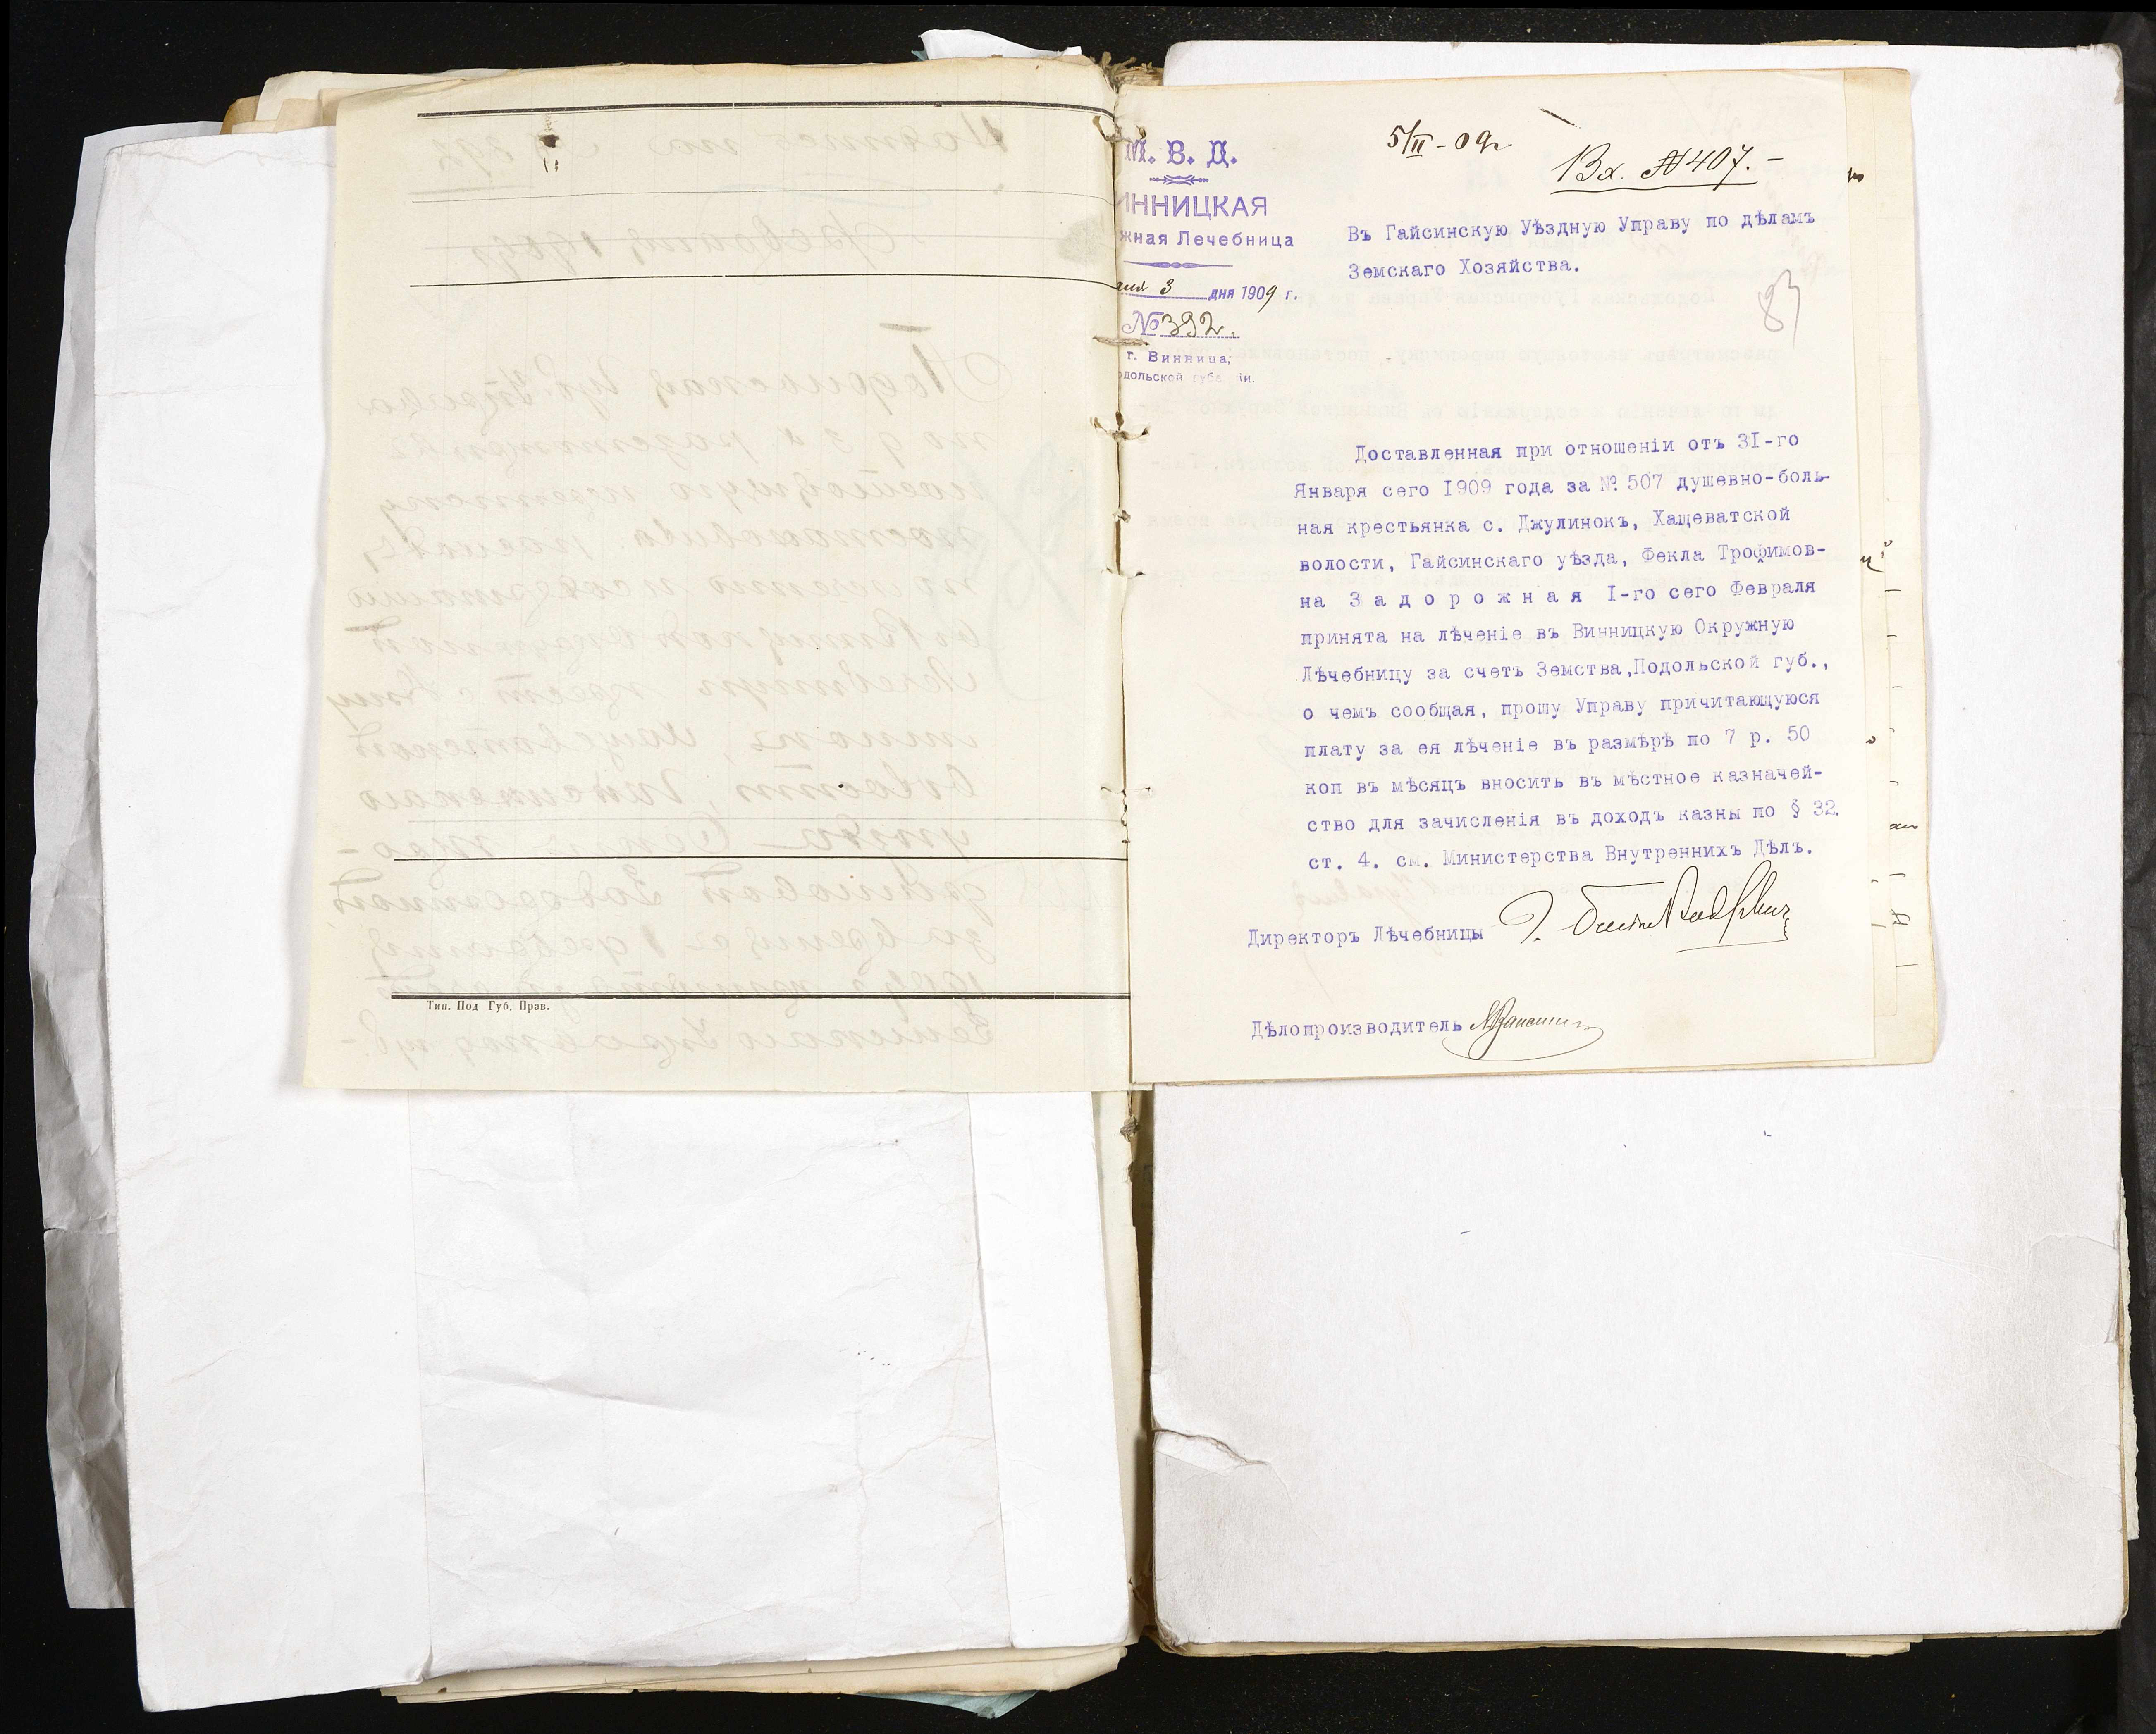 Тип. Под Губ. Прав.
М. В. Д.
ИННИЦКАЯ
жная Лечебница
3 дня 1909 г.
№ 392.
г. Винница,
одольской губе ніи.
5/II - 09 г.
Вх. № 407. -
Въ Гайсинскую Уѣздную Управу по дѣламъ
Земскаго Хозяйства.
83
Доставленная при отношеніи отъ 3I-го
Января сего I909 года за № 507 душевно-боль-
ная крестьянка с. Джулинокъ, Хащеватской
волости, Гайсинскаго уѣзда, Фекла Трофимов-
на З а д о р о ж н а я I-го сего Февраля
принята на лѣченіе въ Винницкую Окружную
Лѣчебницу за счетъ Земства,Подольской губ.,
о чемъ сообщая, прошу Управу причитающуюся
плату за ея лѣченіе въ размѣрѣ по 7 р. 50
коп въ мѣсяцъ вносить въ мѣстное казначей-
ство для зачисленія въ доходъ казны по § 32.
ст. 4. см. Министерства Внутреннихъ Дѣлъ.
Директоръ Лѣчебницы
Дѣлопроизводитель